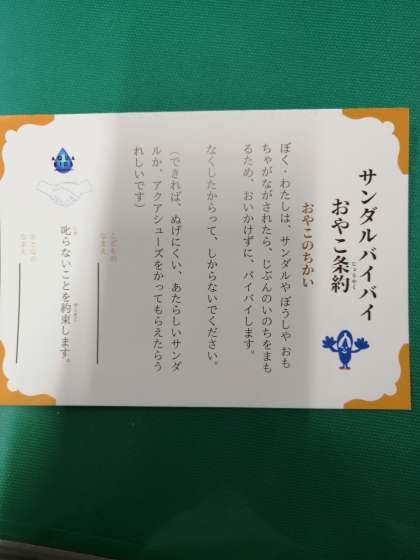 サンダルバイバイ
おやこ条約
じょうやく
おやこのちかい
ぼく・わたしは、サンダルや ぼうしや おも
ちゃがながされたら、じぶんのいのちをまも
るため、おいかけずに、バイバイします。
なくしたからって、しからないでください。
(できれば、ぬげにくい、あたらしいサンダ
ルか、アクアシューズをかってもらえたらう
れしいです)
こどもの
なまえ
叱らないことを約束します。
しか
やくそく
おとなの
なまえ
AQUA